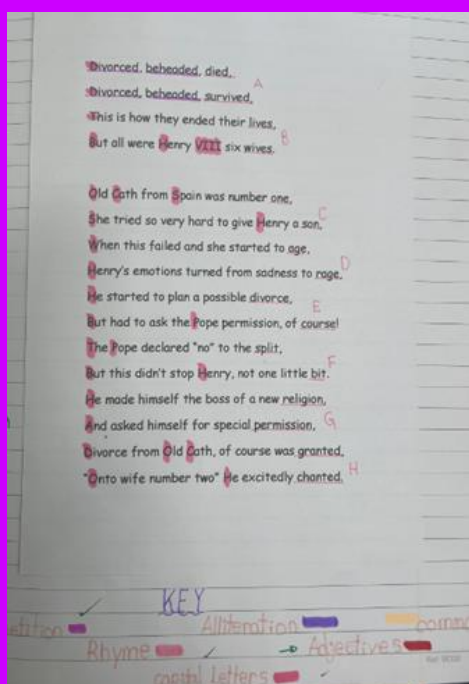 Divorced, beheaded, died,
A
Divorced, beheaded, survived,
This is how they ended their lives,
B
But all were Henry VIII six wives.
Old Cath from Spain was number one,
C
She tried so very hard to give Henry a son,
When this failed and she started to age,
D
Henry's emotions turned from sadness to rage.
He started to plan a possible divorce,
E
But had to ask the Pope permission, of course!
The Pope declared "no" to the split,
F
But this didn't stop Henry, not one little bit.
He made himself the boss of a new religion,
And asked himself for special permission, G
Divorce from Old Cath, of course was granted,
"Onto wife number two" He excitedly chanted. H
KEY
Alliteration
Rhyme
Adjectives
capital letters